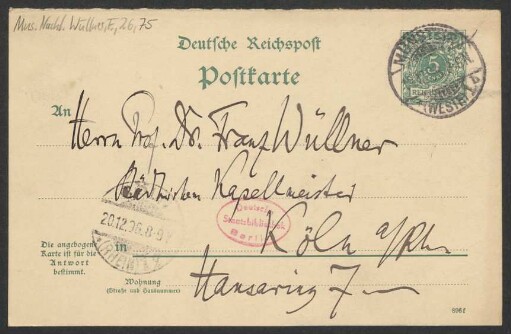 Mus. Nachl. Wüllner, F, 26, 75
Deutsche Reichspost
Postkarte
MÜNSTER
5
(WESTF.)
An
Herrn Prof. Dr. Franz Wüllner
Städtischen Kapellmeister
Deutsche
Staatsbibliothek
Berlin
20.12.96.8-9
(RHEIN)
in Köln a/Rh.
Die angebogene
Karte ist für die
Antwort
bestimmt.
Wohnung
(Straße und Hausnummer)
Hansaring 7